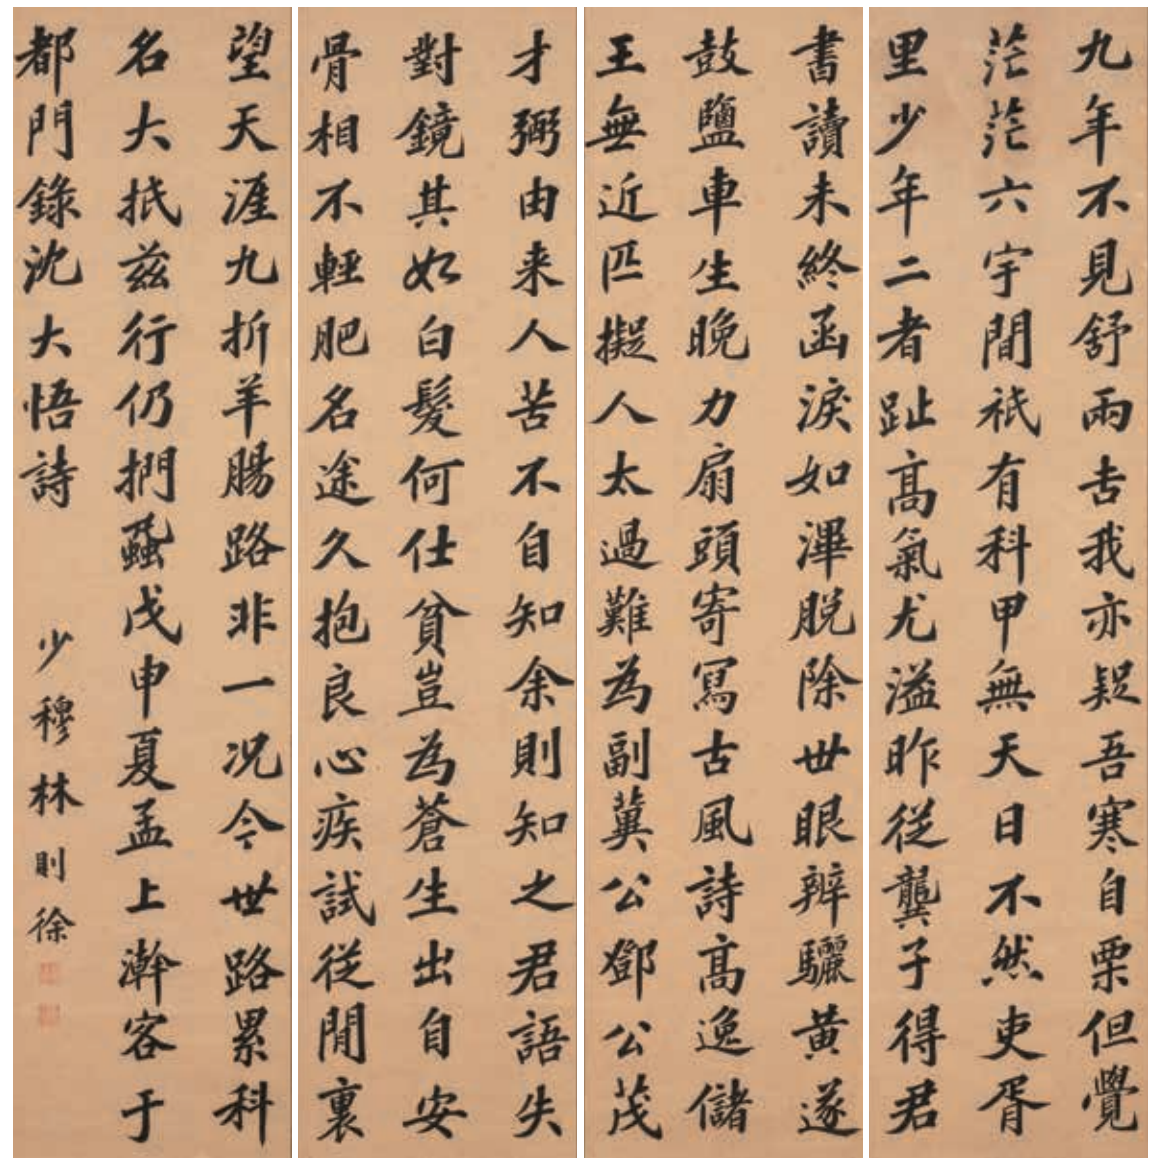 九年不見舒兩吉我亦疑吾寒自栗但覺
茫茫六宇間祇有科甲無天日不然吏胥
里少年二者趾高氣尤溢昨從龔子得君
書讀未終函淚如滭脫除世眼辨驪黃遂
鼓鹽車生晚力扇頭寄寫古風詩高逸儲
王無近匹擬人太過難為副冀公鄧公茂
才弼由来人苦不自知余則知之君語失
對鏡其如白髮何仕貧豈為蒼生出自安
骨相不輕肥名途久抱良心疾試從閒裏
望天涯九折羊腸路非一况今世路累科
名大抵茲行仍捫蝨戊申夏孟上澣客于
都門錄沈大悟詩
少穆林則徐